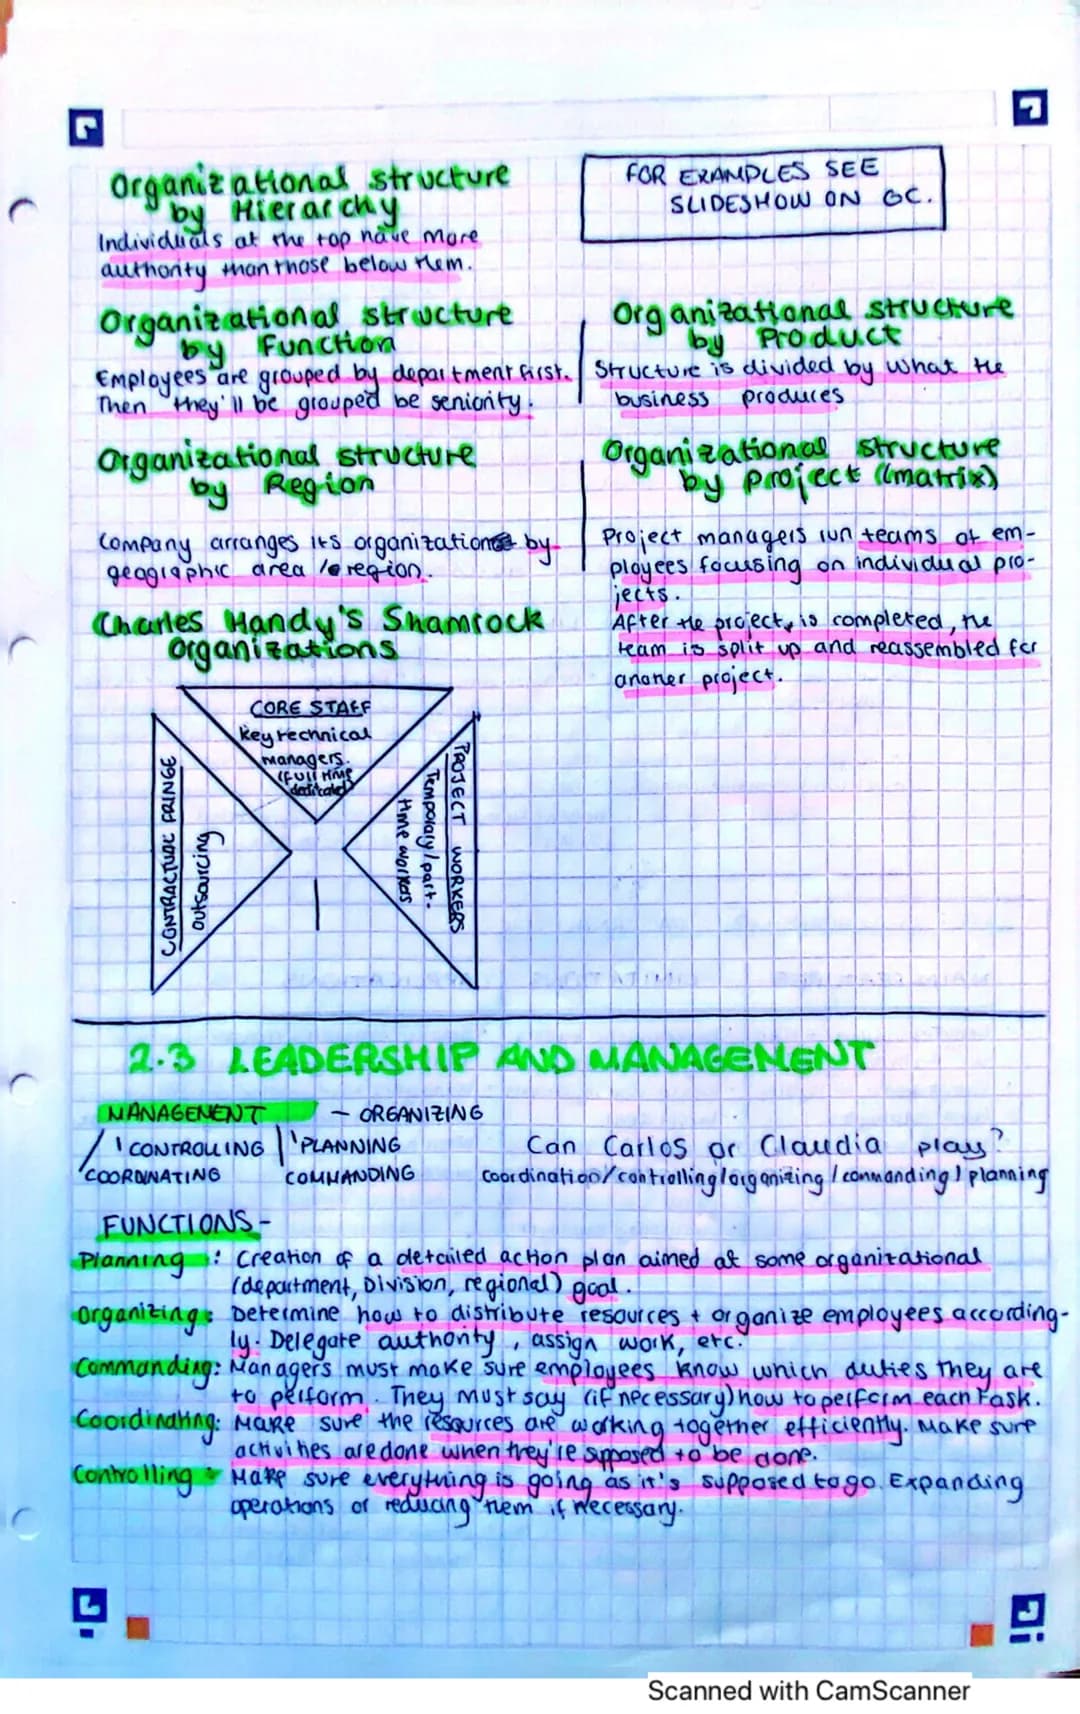 Organizational structure
by Hierarchy
Individuals at the top have more
authority than those below them.
FOR EXAMPLES SEE
SLIDESHOW ON GC.
Organizational structure
by Function
Employees are grouped by department first.
Then they'll be grouped be seniority.
Organizational structure
by Product
Structure is divided by what the
business produces
Organizational structure
by Region
Company arranges its organization by
geographic area / region.
Organizational structure
by project (matrix)
Project managers run teams of em-
ployees focusing on individual pro-
jects.
After the project, is completed, the
team is split up and reassembled for
another project.
Charles Handy's Shamrock
Organizations
CORE STAFF
key technical
managers.
(full time
dedicated)
CONTRACTUAL FRINGE
outsourcing
PROJECT WORKERS
Temporary/part-
time workers
2.3 LEADERSHIP AND MANAGEMENT
MANAGEMENT - ORGANIZING
CONTROLLING PLANNING
COORDINATING COMMANDING
Can Carlos or Claudia play?
coordination/controlling/organizing/commanding/planning
FUNCTIONS-
Planning: Creation of a detailed action plan aimed at some organizational
(department, Division, regional) goal.
Organizing: Determine how to distribute resources + organize employees according-
ly. Delegate authority, assign work, etc.
Commanding: Managers must make sure employees know which duties they are
to perform. They must say (if necessary) how to perform each task.
Coordinating: Make sure the resources are working together efficiently. Make sure
activities are done when they're supposed to be done.
Controlling: Make sure everything is going as it's supposed to go. Expanding
operations or reducing them if necessary.
Scanned with CamScanner